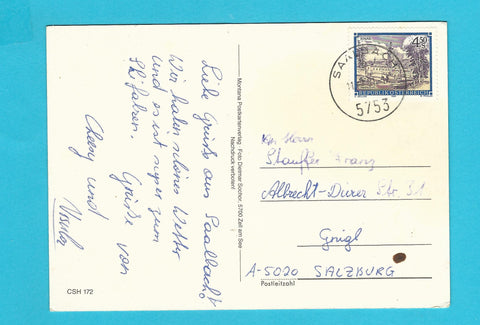 Liebe Grüße aus Saalbach!
Wir haben schönes Wetter
und es ist super zum
Ski fahren. Grüße von
und
CSH 172
Montana Postkartenverlag · Foto Dietmar Sochor, 5700 Zell am See
Nachdruck verboten!
4.50
REPUBLIK ÖSTERREICH
5753
Herrn
Stauffer Franz
Albrecht-Dürer Str. 31
Gnigl
A-5020 SALZBURG
Postleitzahl